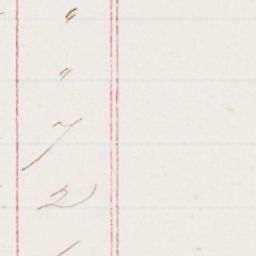 "
"
7
2